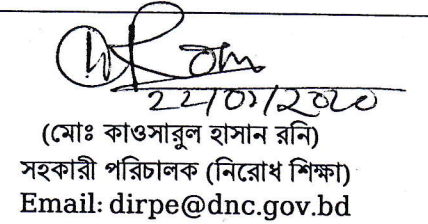 22/07/2020
(মোঃ কাওসারুল হাসান রনি)
সহকারী পরিচালক (নিরোধ শিক্ষা)
Email: dirpe@dnc.gov.bd